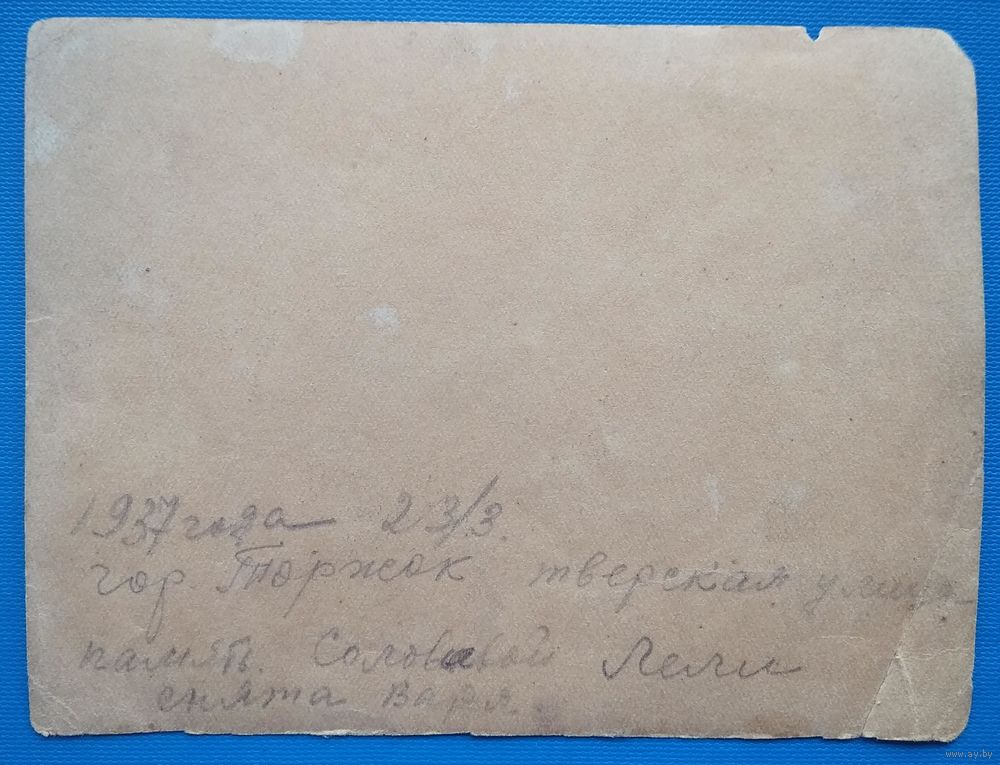 1937 года 23/3.
гор. Торжок тверская улица
память. Соловьевой Лели
снята Варя.
www.ay.by